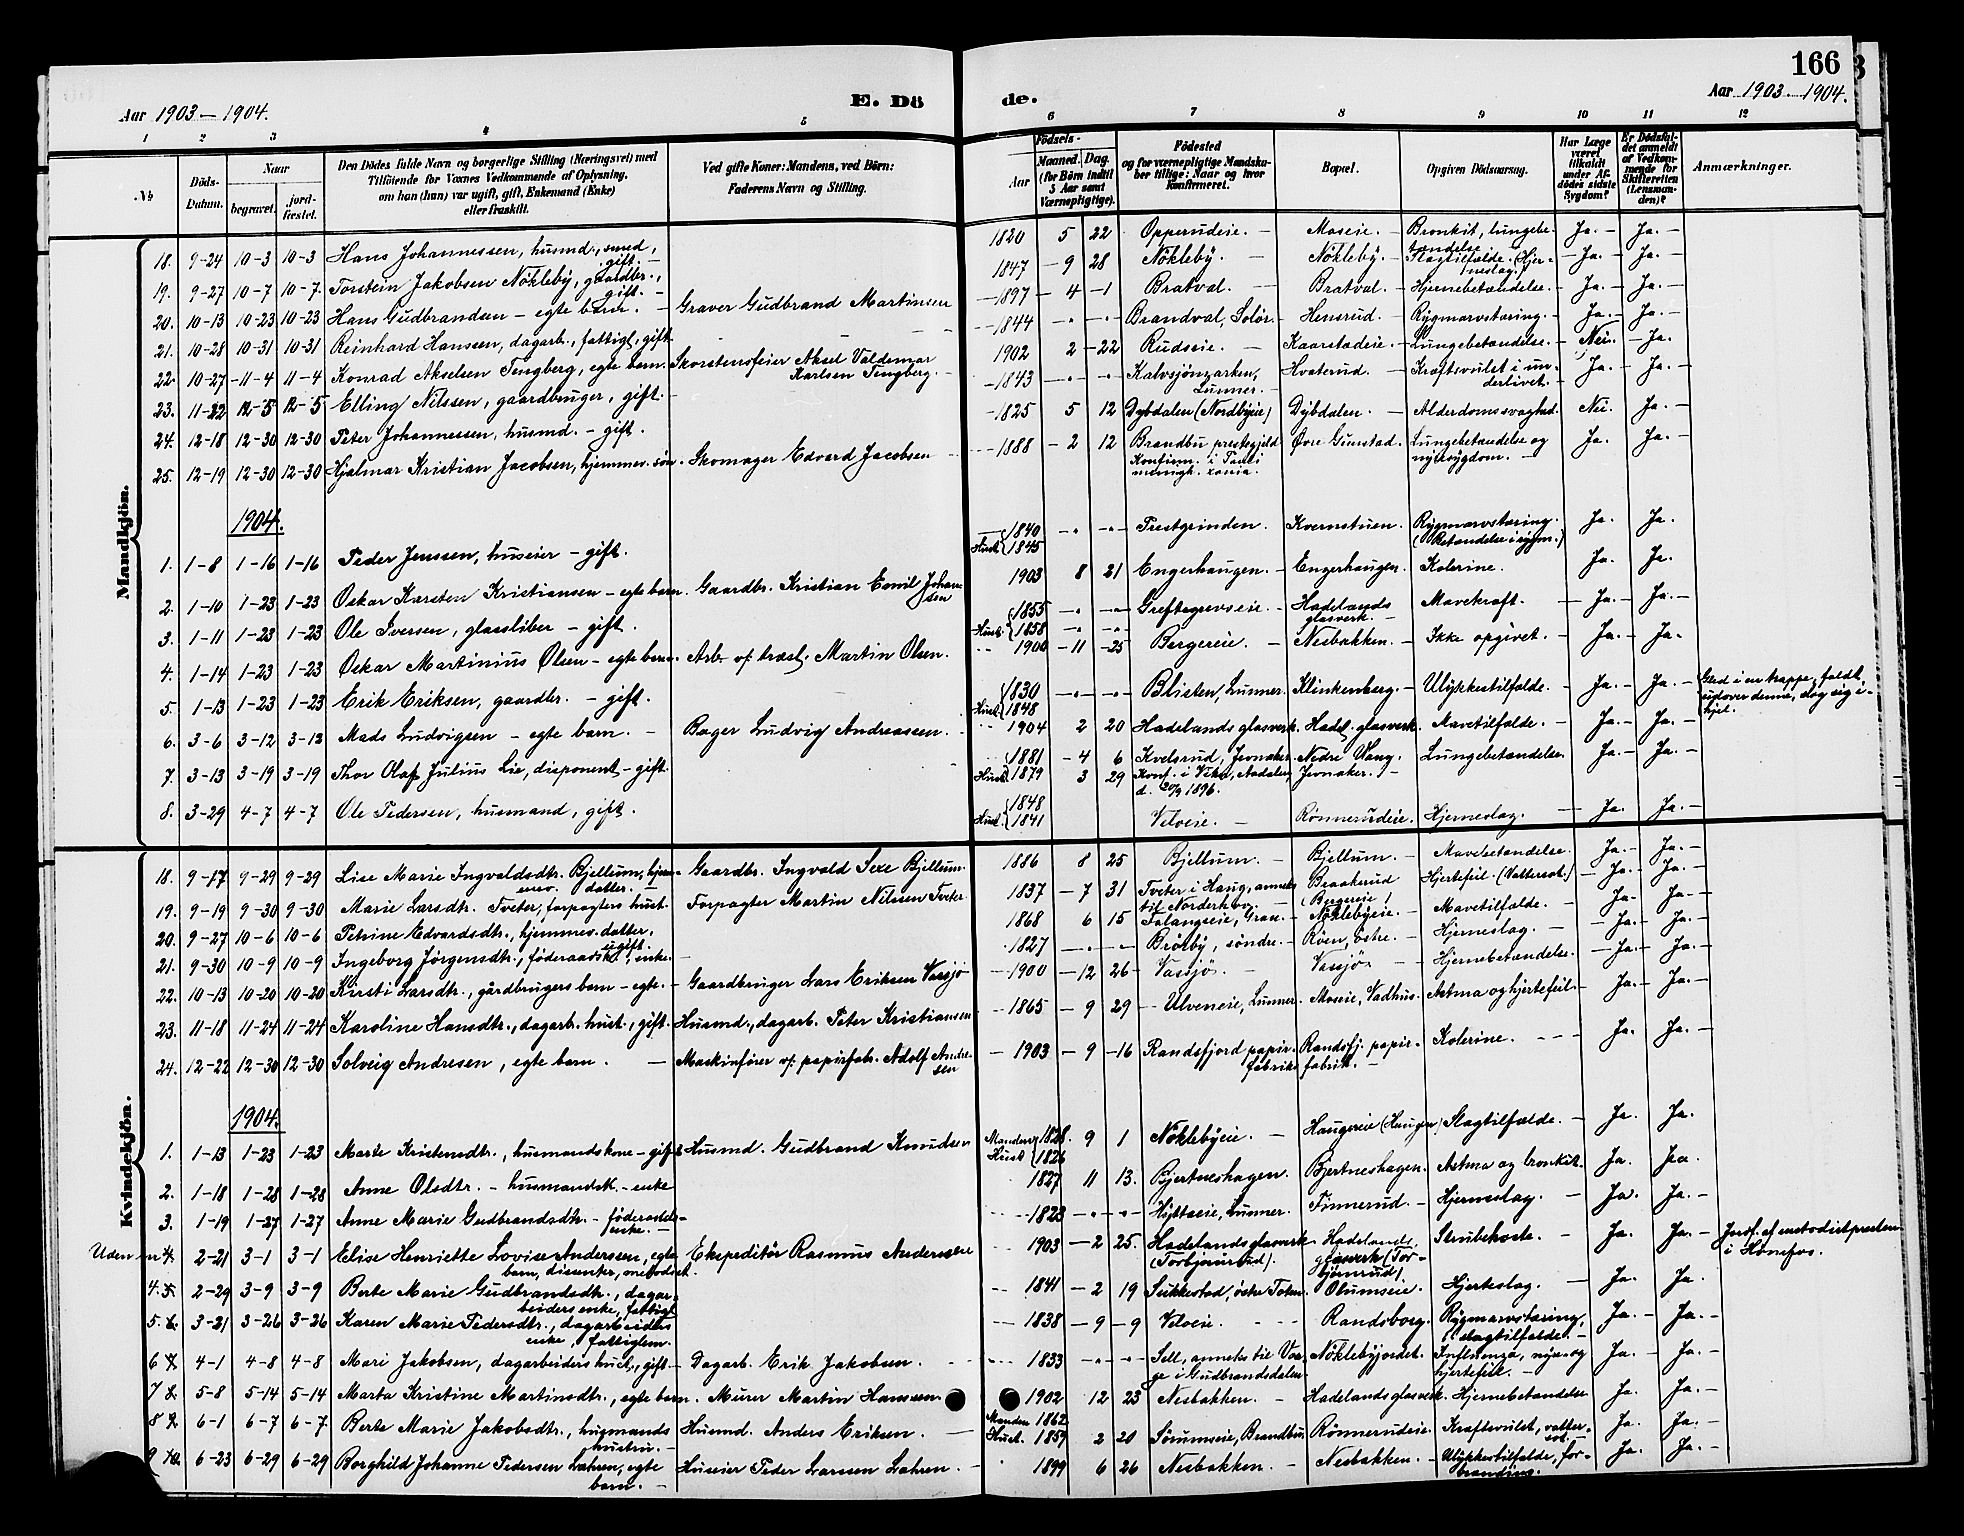 166
Aar 1903 – 1904.
E. Dö
de.
Aar 1903 – 1904.
1 2 3 4 5 6 7 8 9 10 11 12
No
Döds-Datum.
Naar
begravet.
jord-fæstet.
Den Dödes fulde Navn og borgerlige Stilling (Næringsvei) med
Tilföiende for Voxnes Vedkommende af Oplysning,
om han (hun) var ugift, gift, Enkemand (Enke)
eller fraskilt.
Ved gifte Koner: Mandens, ved Börn:
Faderens Navn og Stilling.
Födsels-
Aar
Maaned. Dag.
(for Börn indtil
5 Aar samt
Værnepligtige).
Födested
og for værnepligtige Mandska-
ber tillige: Naar og hvor
konfirmeret.
Bopæl.
Opgiven Dödsaarsag.
Har Læge
været
tilkaldt
under Af-
dödes sidste
Sygdom?
Er Dödsfal-
det anmeldt
af Vedkom-
mende for
Skifteretten
(Lensman-
den)?
Anmærkninger.
Mandkjön.
18. 9-24 10-3 10-3 Hans Johannessen, husmd., smed, gift. – 1820 5 22 Opperudeie. – Moseie. – Bronkit, lungebe-tændelse Ja. – Ja. –
19. 9-27 10-7 10-7. Torstein Jakobsen Nökleby, gaardbr., gift. – 1847 – 9 28 Nökleby. – Nökleby. – Slagtilfælde. (Hjer-neslag.) – Ja. – Ja. –
20. 10-13 10-23 10-23 Hans Gudbrandsen – egte barn. – Graver Gudbrand Martinsen – 1897 – 4 – 1 Bratval. – Bratval. – Hjernebetændelse. – Ja. – Ja. –
21. 10-28 10-31 10-31 Reinhard Hanssen, dagarb., fattigl., gift – 1844 – " – " – Brandval, Solör. – Hensrud. – Rygmarvstæring. – Ja. – Ja. –
22. 10-27 – 11-4 11-4 Konrad Akselsen Tengberg, egte barn. Skorstensfeier Aksel Valdemar Karlsen Tengberg. – 1902 2 – 22 Rudseie. – Kaarstadeie. – Lungebetændelse. – Nei. – Ja.
23. 11-22 12-5 12-5 Elling Nilssen, gaardbruger, gift. – – 1843 – " – " – Kalvsjömarken, Lunner. – Hvaterud. – Kræftsvulst i un-derlivet. – Ja. – Ja. –
24. 12-18 12-30 12-30 Peter Johannessen, husmd. – gift. – 1825 5 12 Dybdalen (Nordbyeie) Dybdalen. – Alderdomssvaghed. Nei. Ja. –
25. 12-19 12-30 12-30 Hjalmar Kristian Jacobsen, hjemmev. sön. Skomager Edvard Jacobsen – 1888 – 2 12 Brandbu prestegjeld Øvre Grinstad. Lungebetændelse og nyresygdom. – Ja. Ja. –
1904.
1. 1-8 1-16 1-16 Peder Jenssen, huseier – gift. 1840 Hust. 1845 – " – " – Prestgrinden. Kvernstuen. Rygmarvstæring. (Betændelse i rygm.) Ja. Ja.
2. 1-10 1-23 1-23 Oskar Karsten Kristiansen – egte barn. Gaardbr. Kristian Emil Johan-sen 1903 8 21 Engerhaugen. – Engerhaugen. Kolerine. Ja. Ja.
3. 1-11 1-23 1-23 Ole Iversen, glassliber – gift. 1855 Hust. 1858 – " – " – Greftegrevseie. – Hadelands glasverk. – Mavekræft. – Ja. – Ja. –
4. 1-14 1-23 1-23 Oskar Martinius Olsen – egte barn. Arb. v/ træsl. Martin Olsen. 1900 – 11 – 25 Bergereie. – Nesbakken. – Ikke opgivet. – Ja. – Ja.
5. 1-13 1-23 1-23 Erik Eriksen, gaardbr. – gift. 1830 Hust. 1848 – " – " – Blisten, Lunner. Klinkenberg. – Ulykkestilfælde. – Ja. – Ja. – Gled i en trappe, faldt udover denne, slog sig i-hjel.
6. 3-6 3-12 3-12 Mads Ludvigsen – egte barn. – Bager Ludvig Andreassen. 1904 2 20 Hadelands glasverk. Hadel. glasverk. – Mavetilfælde. – Ja. – Ja. –
7. 3-13 3-19 3-19 Thor Olaf Julius Lie, disponent – gift. 1881 Hust. 1879 – 4 6 3 29 Kvelsrud, Jevnaker. Konf. i Viker, Aadalen, d. 20/9 1896. Nedre Vang, Jevnaker. – Lungebetændelse. Ja. – Ja. –
8. 3-29 4-7 4-7 Ole Pedersen, husmand, gift. 1848 Hust. 1841 Veloeie. – Rönnerudeie. Hjerneslag. – Ja. Ja. –
Kvindekjön.
18. 9-17 9-29 9-29 Lise Marie Ingvaldsdtr. Bjellum, hjem-mev. datter. – Gaardbr. Ingvald Sexe Bjellum. 1886 8 25 Bjellum. – Bjellum. – Mavebetændelse. Ja. – Ja. –
19. 9-19 9-30 9-30 Marie Larsdtr. Tveter, forpagters hust. Forpagter Martin Nilssen Tveter. 1837 – 7 31 Tveter i Haug, anneks til Norderhov. – Braakerud (Bergereie) Hjertefeil. (Vattersot.) – Ja. – Ja. –
20. 9-27 10-6 10-6 Petrine Edvardsdtr., hjemmev. datter, ugift. 1868 6 15 Falangseie, Gran. – Nöklebyeie. – Mavetilfælde. – Ja. – Ja. –
21. 9-30 10-9 10-9 Ingeborg Jörgensdtr., föderaadsk., enke. – 1827 – " – " – Brörby, söndre. – Röen, östre. – Hjerneslag. – Ja. – Ja. –
22. 10-13 10-20 10-20 Kirsti Larsdtr., gårdbrugers barn – egte. – Gaardbruger Lars Eriksen Vassjö – 1900 – 12 26 – Vassjö. – Vassjö. – Hjernebetændelse. – Ja. – Ja. –
23. 11-18 11-24 11-24 Karoline Hansdtr., dagarb. hust., gift. Husmd., dagarb. Peter Kristiansen – 1865 – 9 29 – Ulveneie, Lunner. Moseie, Vadhus. Astma og hjertefeil. – Ja. – Ja. –
24. 12-22 12-30 12-30 Solveig Andresen, egte barn. – Maskinförer v/ papirfabr. Adolf Andre-sen – 1903 – 9 – 16 Randsfjord papir-fabrik Randsfj. papir-fabrik. – Kolerine. – Ja. Ja. –
1904.
1. 1-13 1-23 1-23 Marte Kristensdtr., husmandskone – gift. Husmd. Gudbrand Knudsen Manden 1828. Hust. 1826 9 1 Nöklebyeie. – Haugereie (Haugen) Slagtilfælde. – Ja. Ja.
2. 1-18 1-28 1-28 Anne Olsdtr. – husmandsk. – enke 1827 11 13. Bjertneshagen. Bjertneshagen. Astma og bronkit. Ja. Ja.
3. 1-19 1-27 1-27 Anne Marie Gudbrandsdtr. – föderaads-enke. – 1823 – " – " – Hyttaeie, Lunner. Finnerud. – Hjerneslag. – Ja. Ja. –
Uden nr. 2-21 3-1 3-1 Elise Henriette Lovise Anderssen, egte barn, dissenter, metodist. Ekspeditör Rasmus Anderssen – 1903 – 2 25. Hadelands glasverk (Torbjörnrud). – Hadelands glasverk (Tor-björnrud) Strubehoste. – Ja. Ja. – Jordf. af metodistpresten i Hönefos.
4. 2-29 3-9 3-9 Berte Marie Gudbrandsdtr., dagar-beiders enke, fattigl. 1841 – 2 19 Sukkestad, östre Toten. Olumseie. Hjerteslag. – Ja. Ja.
5. 3-21 3-26 3-26 Karen Marie Pedersdtr., dagarbeiders enke, fattiglem. 1838 – 9 – 9 Veloeie. – Randsborg. Rygmarvstæring, slagtilfælde. – Ja. – Ja. –
6 4-1 4-8 4-8 Mari Jakobsen, dagarbeiders hust., gift. – Dagarb. Erik Jakobsen. 1833 – " – " – Sell, anneks til Vaa-ge i Gudbrandsdalen. Nöklebyjordet. Influenza, nyre- og hjertefeil. – Ja. – Ja. –
7 5-8 5-14 5-14 Marta Kristine Martinsdtr., egte barn. Murer Martin Hanssen 1902 12 23 Nesbakken. – Hadelands glasverk. Hjernebetændelse Ja. Ja. –
8 6-1 6-7 6-7 Berte Marie Jakobsdtr., husmands hustru. – Husmd. Anders Eriksen. – Manden 1862 Hust. 1859 2 20 Sörumseie, Brandbu, Rönnerudeie. Kræftsvulst, vatter-sot. – Ja. Ja. –
9 6-23 6-29 6-29 Borghild Johanne Pedersen Lahren, egte barn. – Huseier Peder Larssen Lahren. – 1899 6 26 – Nesbakken. – Nesbakken. – Ulykkestilfælde, for-brænding. Ja. Ja. –